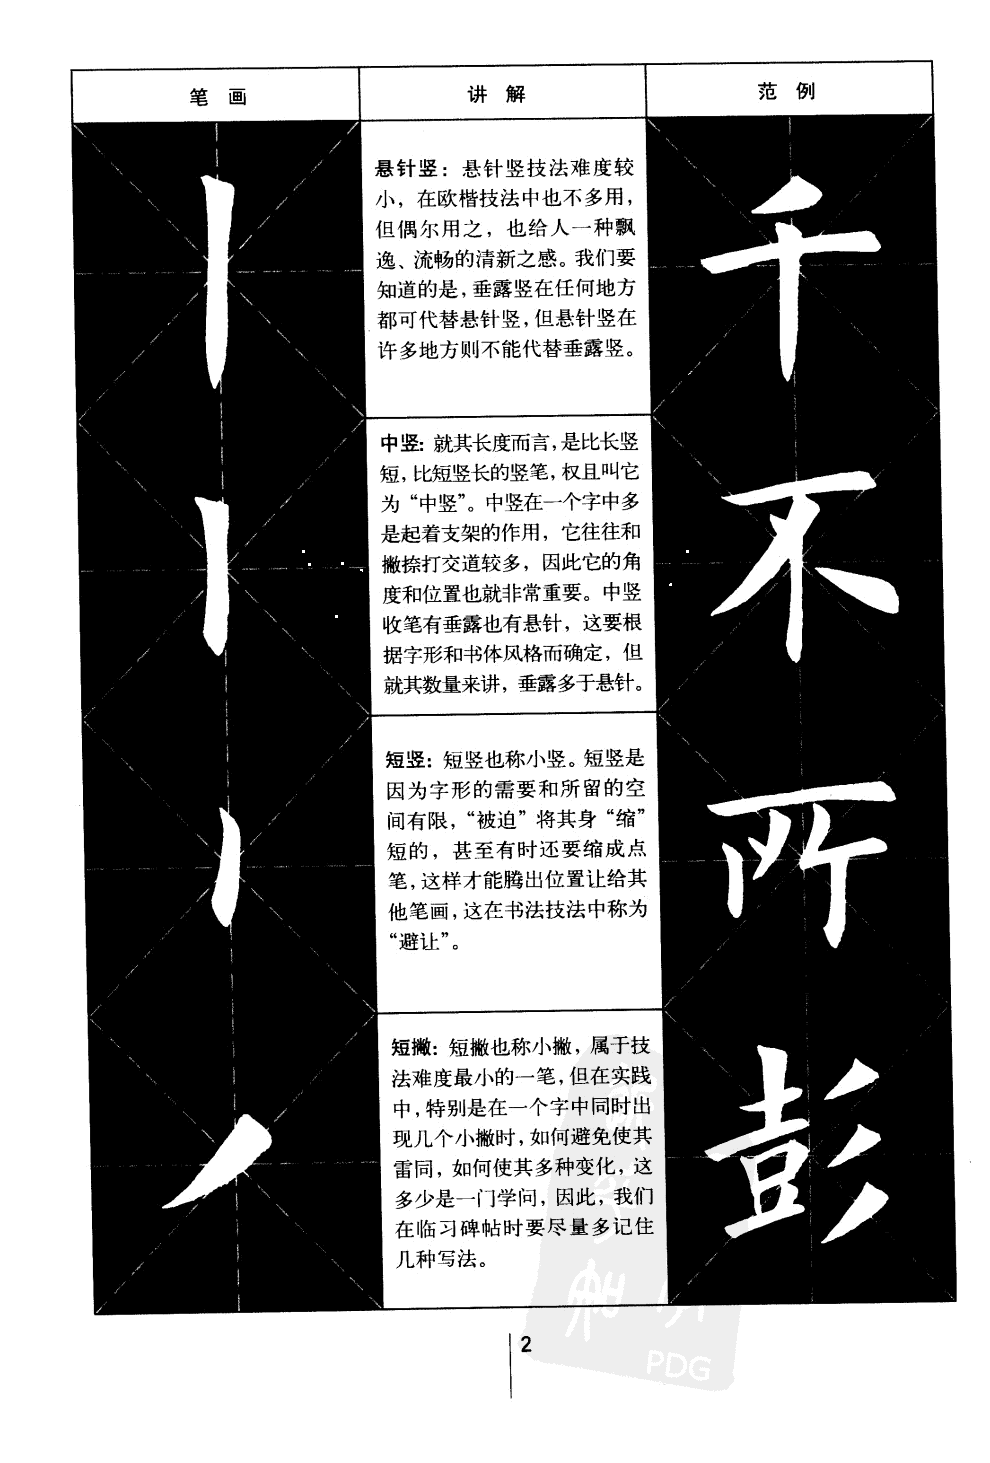 笔 画 讲 解 范 例
悬针竖：悬针竖技法难度较
小，在欧楷技法中也不多用，
但偶尔用之，也给人一种飘
逸、流畅的清新之感。我们要
知道的是，垂露竖在任何地方
都可代替悬针竖，但悬针竖在
许多地方则不能代替垂露竖。
千
中竖：就其长度而言，是比长竖
短，比短竖长的竖笔，权且叫它
为“中竖”。中竖在一个字中多
是起着支架的作用，它往往和
撇捺打交道较多，因此它的角
度和位置也就非常重要。中竖
收笔有垂露也有悬针，这要根
据字形和书体风格而确定，但
就其数量来讲，垂露多于悬针。
不
短竖：短竖也称小竖。短竖是
因为字形的需要和所留的空
间有限，“被迫”将其身“缩”
短的，甚至有时还要缩成点
笔，这样才能腾出位置让给其
他笔画，这在书法技法中称为
“避让”。
所
短撇：短撇也称小撇，属于技
法难度最小的一笔，但在实践
中，特别是在一个字中同时出
现几个小撇时，如何避免使其
雷同，如何使其多种变化，这
多少是一门学问，因此，我们
在临习碑帖时要尽量多记住
几种写法。
彭
2
PDG